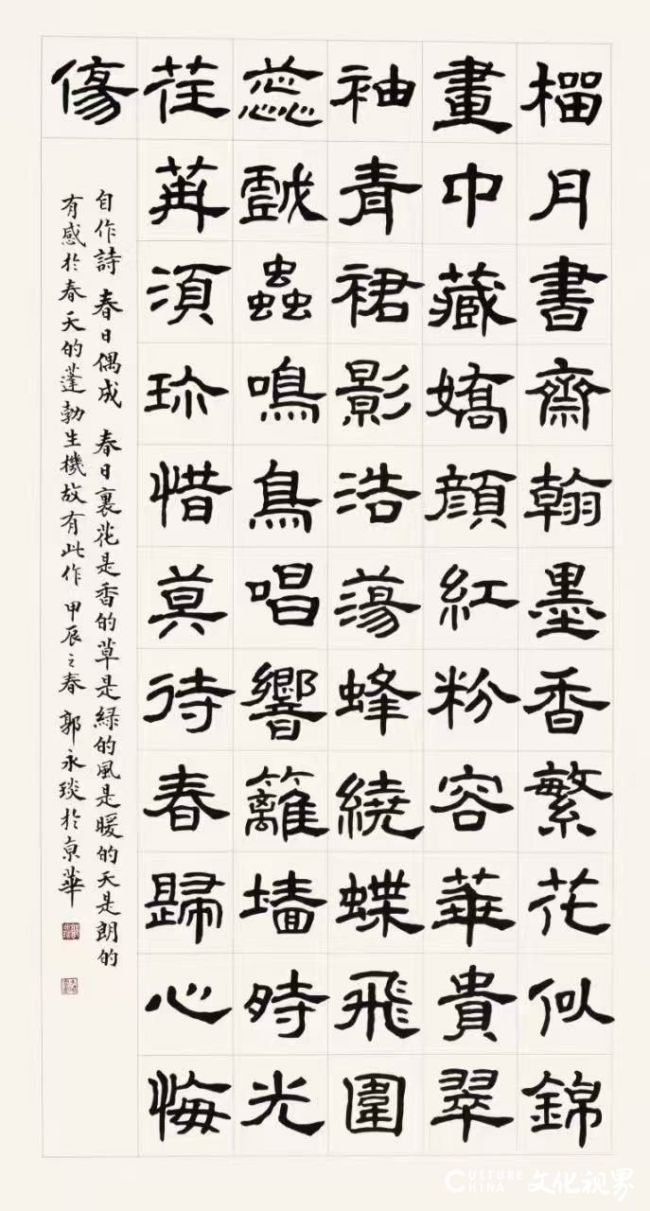 榴月書齋翰墨香繁花似錦
畫中藏嬌顔紅粉容華貴翠
袖青裙影浩蕩蜂繞蝶飛圍
蕊戲蟲鳴鳥唱響籬墻時光
荏苒須珎惜莫待春歸心悔
傷
自作詩 春日偶成 春日裏花是香的草是綠的風是暖的天是朗的
有感於春天的蓬勃生機故有此作 甲辰之春 郭永琰於京華
CULTURE CHINA 文化视界